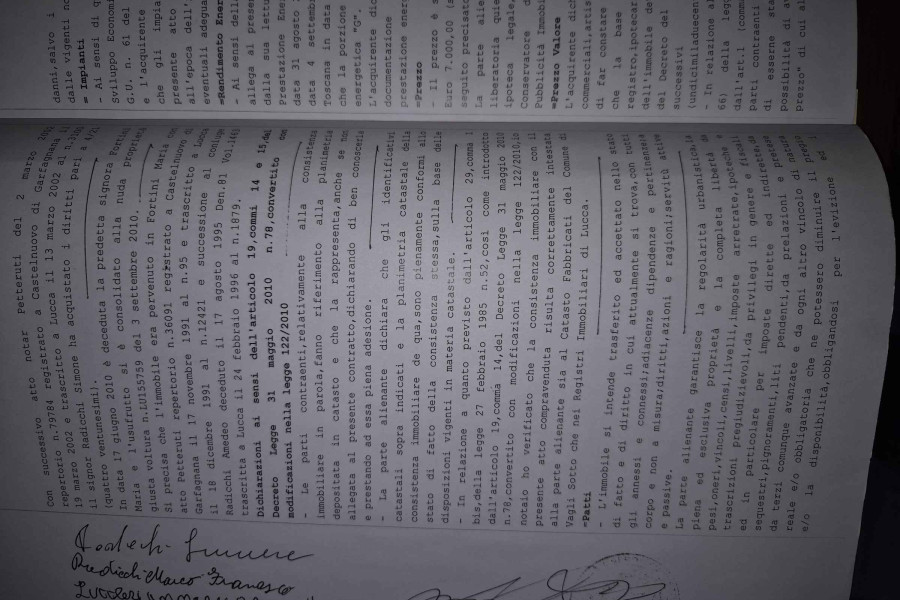 con successivo atto notar Petteruti del 2 marzo
repertorio n.79784 registrato a Castelnuovo di Garfagnana il
19 marzo 2002 e trascritto a Lucca il 13 marzo 2002 al n.
il signor Radicchi Simone ha acquistato i diritti pari a
(quattro ventunesimi).
In data 17 giugno 2010 è deceduta la predetta signora
Maria e l'usufrutto si è consolidato alla nuda proprietà
giusta voltura n.LU155759 del 3 settembre 2010.
Si precisa che l'immobile era pervenuto in Fortini Maria con
atto Petteruti repertorio n.36091 registrato a Castelnuovo di
Garfagnana il 17 dicembre 1991 al n.95 e trascritto a Lucca
il 18 dicembre 1991 al n.12421 e successione al coniuge
Radicchi Amedeo deceduto il 17 agosto 1995 Den.81 Vol.
trascritta a Lucca il 24 febbraio 1996 al n.1879.
Dichiarazioni ai sensi dell'articolo 19,commi 14 e 15,del
Decreto Legge 31 maggio 2010 n.78,convertito con
modificazioni nella legge 122/2010
- Le parti contraenti,relativamente alla consistenza
immobiliare in parola,fanno riferimento alla planimetria
depositata in catasto e che la rappresenta,anche se non
allegata al presente contratto,dichiarando di ben conoscerla
e prestando ad essa piena adesione.
- La parte alienante dichiara che gli identificativi
catastali sopra indicati e la planimetria catastale della
consistenza immobiliare de qua,sono pienamente conformi allo
stato di fatto della consistenza stessa,sulla base delle
disposizioni vigenti in materia catastale.
- In relazione a quanto previsto dall'articolo 29,comma 1
bis,della legge 27 febbraio 1985 n.52,così come introdotto
dall'articolo 19,comma 14,del Decreto Legge 31 maggio 2010
n.78,convertito con modificazioni nella legge 122/2010,io
notaio ho verificato che la consistenza immobiliare con il
presente atto compravenduta risulta correttamente intestata
alla parte alienante sia al Catasto Fabbricati del Comune di
Vagli Sotto che nei Registri Immobiliari di Lucca.
=Patti
- L'immobile si intende trasferito ed accettato nello stato
di fatto e di diritto in cui attualmente si trova,con tutti
gli annessi e connessi;adiacenze dipendenze e pertinenze;a
corpo e non a misura;diritti,azioni e ragioni;servitù attive
e passive.
La parte alienante garantisce la regolarità urbanistica,
piena ed esclusiva proprietà e la completa libertà da
pesi,oneri,vincoli,censi,livelli,imposte arretrate,ipoteche e
trascrizioni pregiudizievoli,da privilegi in genere fiscali
ed in particolare per imposte dirette ed indirette,da
sequestri,pignoramenti,liti pendenti,da prelazioni di natura
reale e/o comunque avanzate e da ogni altro vincolo di natura
e/o obbligatoria che ne potessero diminuire il
e/o la disponibilità,obbligandosi per l'evizione ed
danni,salvo i
dalle vigenti no
= Impianti
- Ai sensi di q
Sviluppo Econom
G.U. n. 61 del
e l'acquirente
che gli impia
presente atto
all'epoca dell'
eventuali adegua
=Rendimento Ener
- Ai sensi della
allega al presen
dalla sua lettu
Prestazione Ener
data 31 agosto
data 4 settemb
Toscana in data
che la porzione
energetica "G".
L'acquirente di
documentazione
prestazione ener
=Prezzo
- Il prezzo è s
Euro 7.000,00 (s
seguito precisat
La parte alie
liberatoria quie
ipoteca legale,
Conservatore d
Pubblicità Immob
=Prezzo Valore
L'acquirente dich
commerciali,artis
di far constatare
che la base i
registro,ipotecar
dell'immobile de
dell'immobile
(undicimiladuecen
successivi
- In relazione al
66) della legg
dall'art.1 (commi
parti contraenti
di essere stat
possibilità di a
prezzo" di cui al